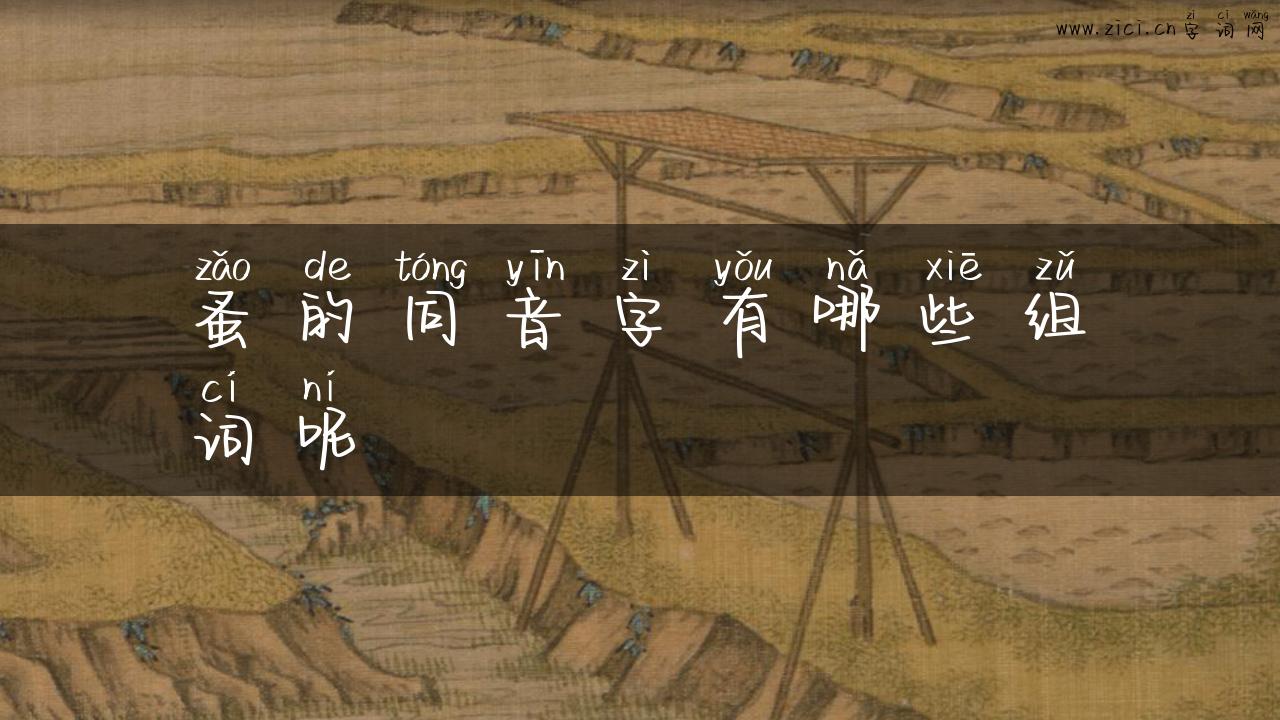 zì cí wǎng
www.zici.cn 字 词 网
zǎo de tóng yīn zì yǒu nǎ xiē zǔ
蚤 的 同 音 字 有 哪 些 组
cí ní
词 呢